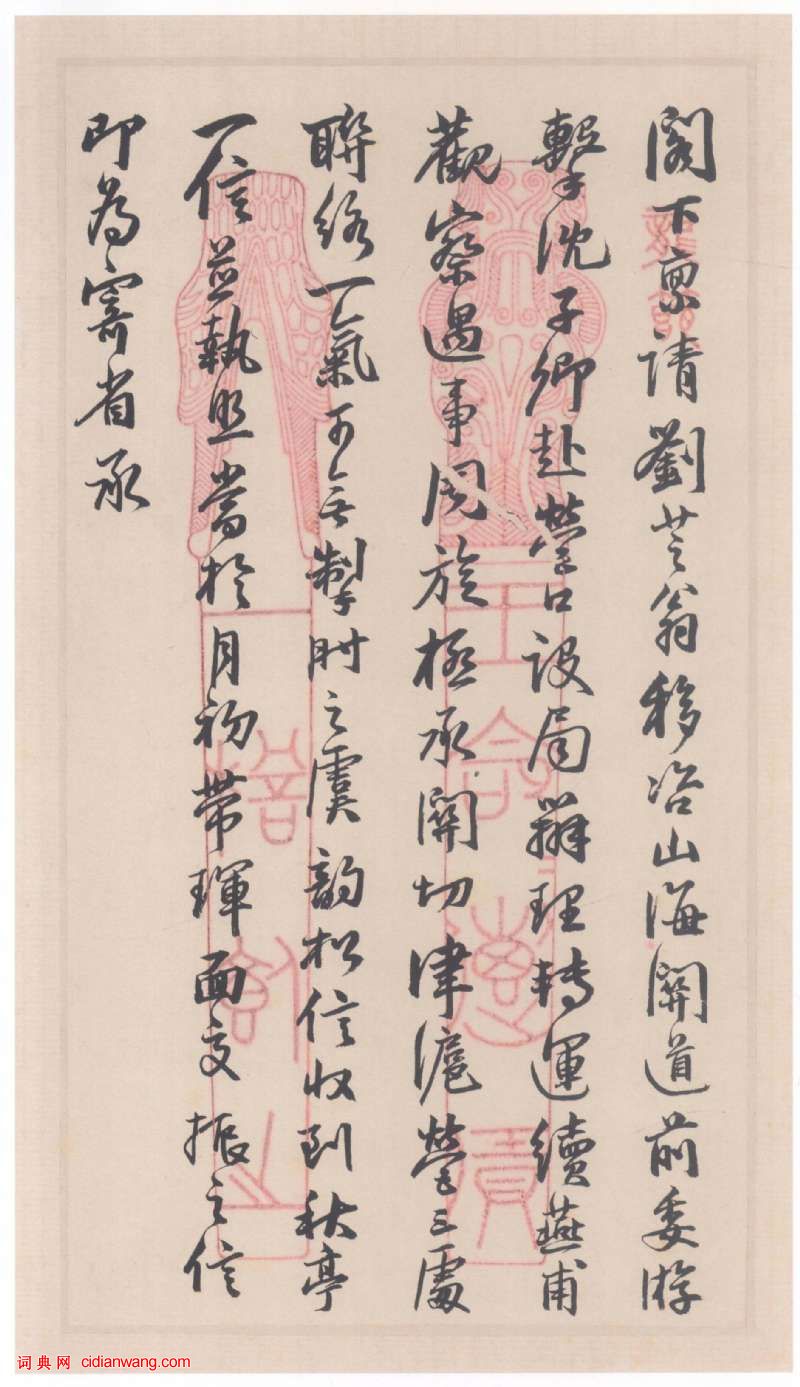 閣下稟請劉芝翁移咨山海關道前委游
擊沈子卿赴營口設局辦理轉運續燕甫
觀察遇事周旋極承關切津滬營三處
聯絡一氣可無掣肘之虞韵松信收到秋亭
一信並執照當於月初帶琿面交振之信
即為寄省承
词典网 cidianwang.com